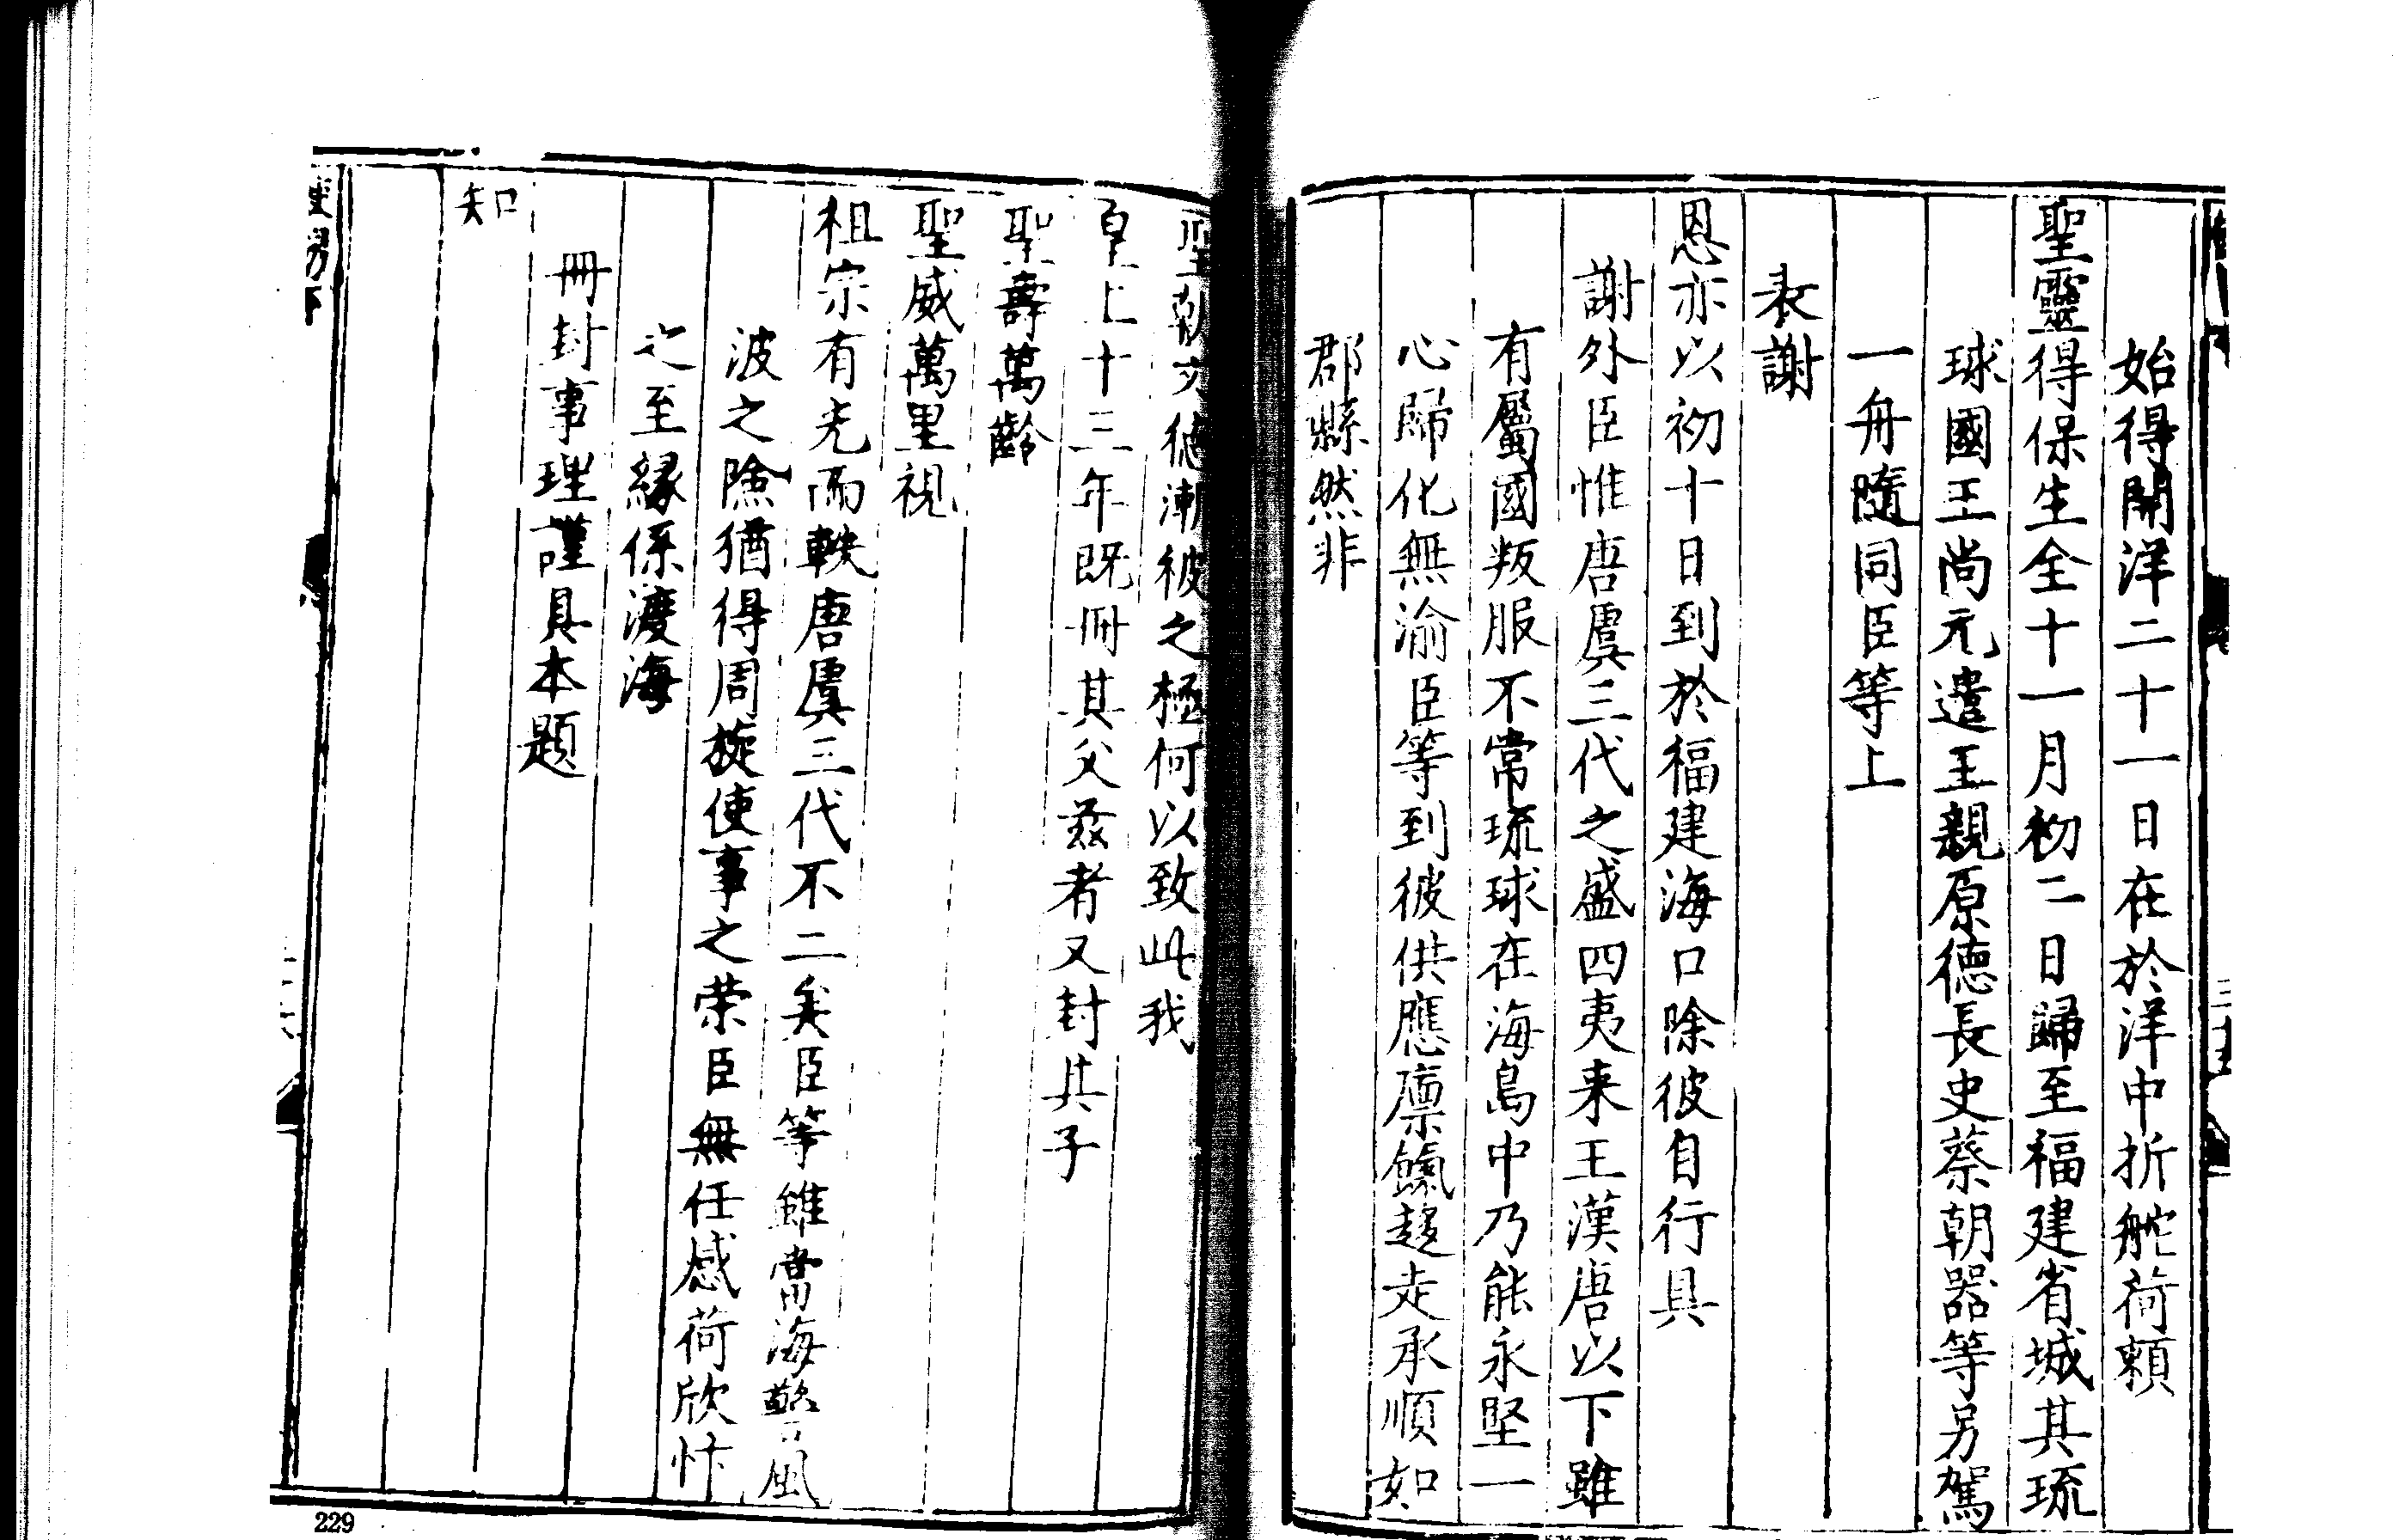 始得開洋二十一日在於洋中折舵荷賴
聖靈得保生全十一月初二日歸至福建省城其琉
球國王尚元遣王親原德長史蔡朝器等另駕
一舟隨同臣等上
表謝
恩亦以初十日到於福建海口除彼自行具
謝外臣惟唐虞三代之盛四夷来王漢唐以下雖
有屬國叛服不常琉球在海島中乃能永堅一
心歸化無渝臣等到彼供應廪餼趍走承順如
郡縣然非
聖朝文德漸被之極何以致此我
皇上十三年既冊其父茲者又封其子
聖壽萬齡
聖威萬里視
祖宗有光而軼唐虞三代不二矣臣等雖當海警風
波之險猶得周旋使事之荣臣無任感荷欣忭
之至緣係渡海
冊封事理謹具本題
知
229